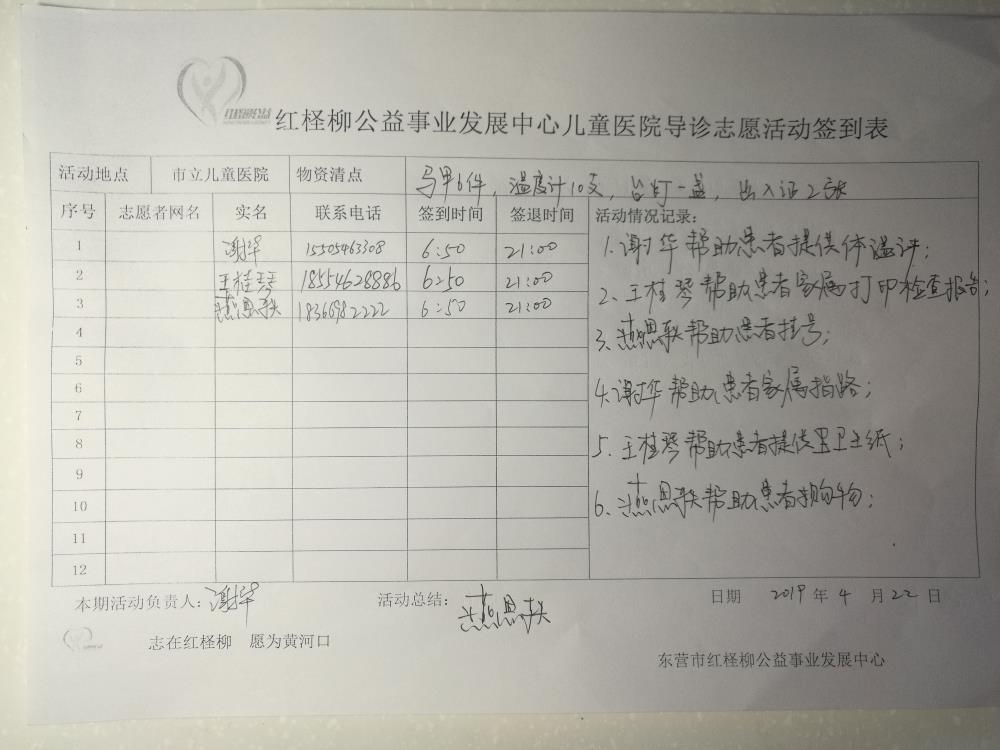 红柽柳公益
红柽柳公益事业发展中心儿童医院导诊志愿活动签到表
活动地点 市立儿童医院 物资清点 马甲6件，温度计10支，台灯一盏，出入证2张
序号 志愿者网名 实名 联系电话 签到时间 签退时间 活动情况记录：
1 谢华 15505463308 6:50 21:00
2 王桂琴 18554628886 6:50 21:00
3 燕思联 18366982222 6:50 21:00
4
5
6
7
8
9
10
11
12
1.谢华帮助患者提供体温计；
2、王桂琴帮助患者家属打印检查报告；
3、燕思联帮助患者挂号；
4.谢华帮助患者家属指路；
5、王桂琴帮助患者提供卫生纸；
6、燕思联帮助患者购物；
本期活动负责人：谢华 活动总结：燕思联 日期 2019年4月22日
志在红柽柳 愿为黄河口
东营市红柽柳公益事业发展中心